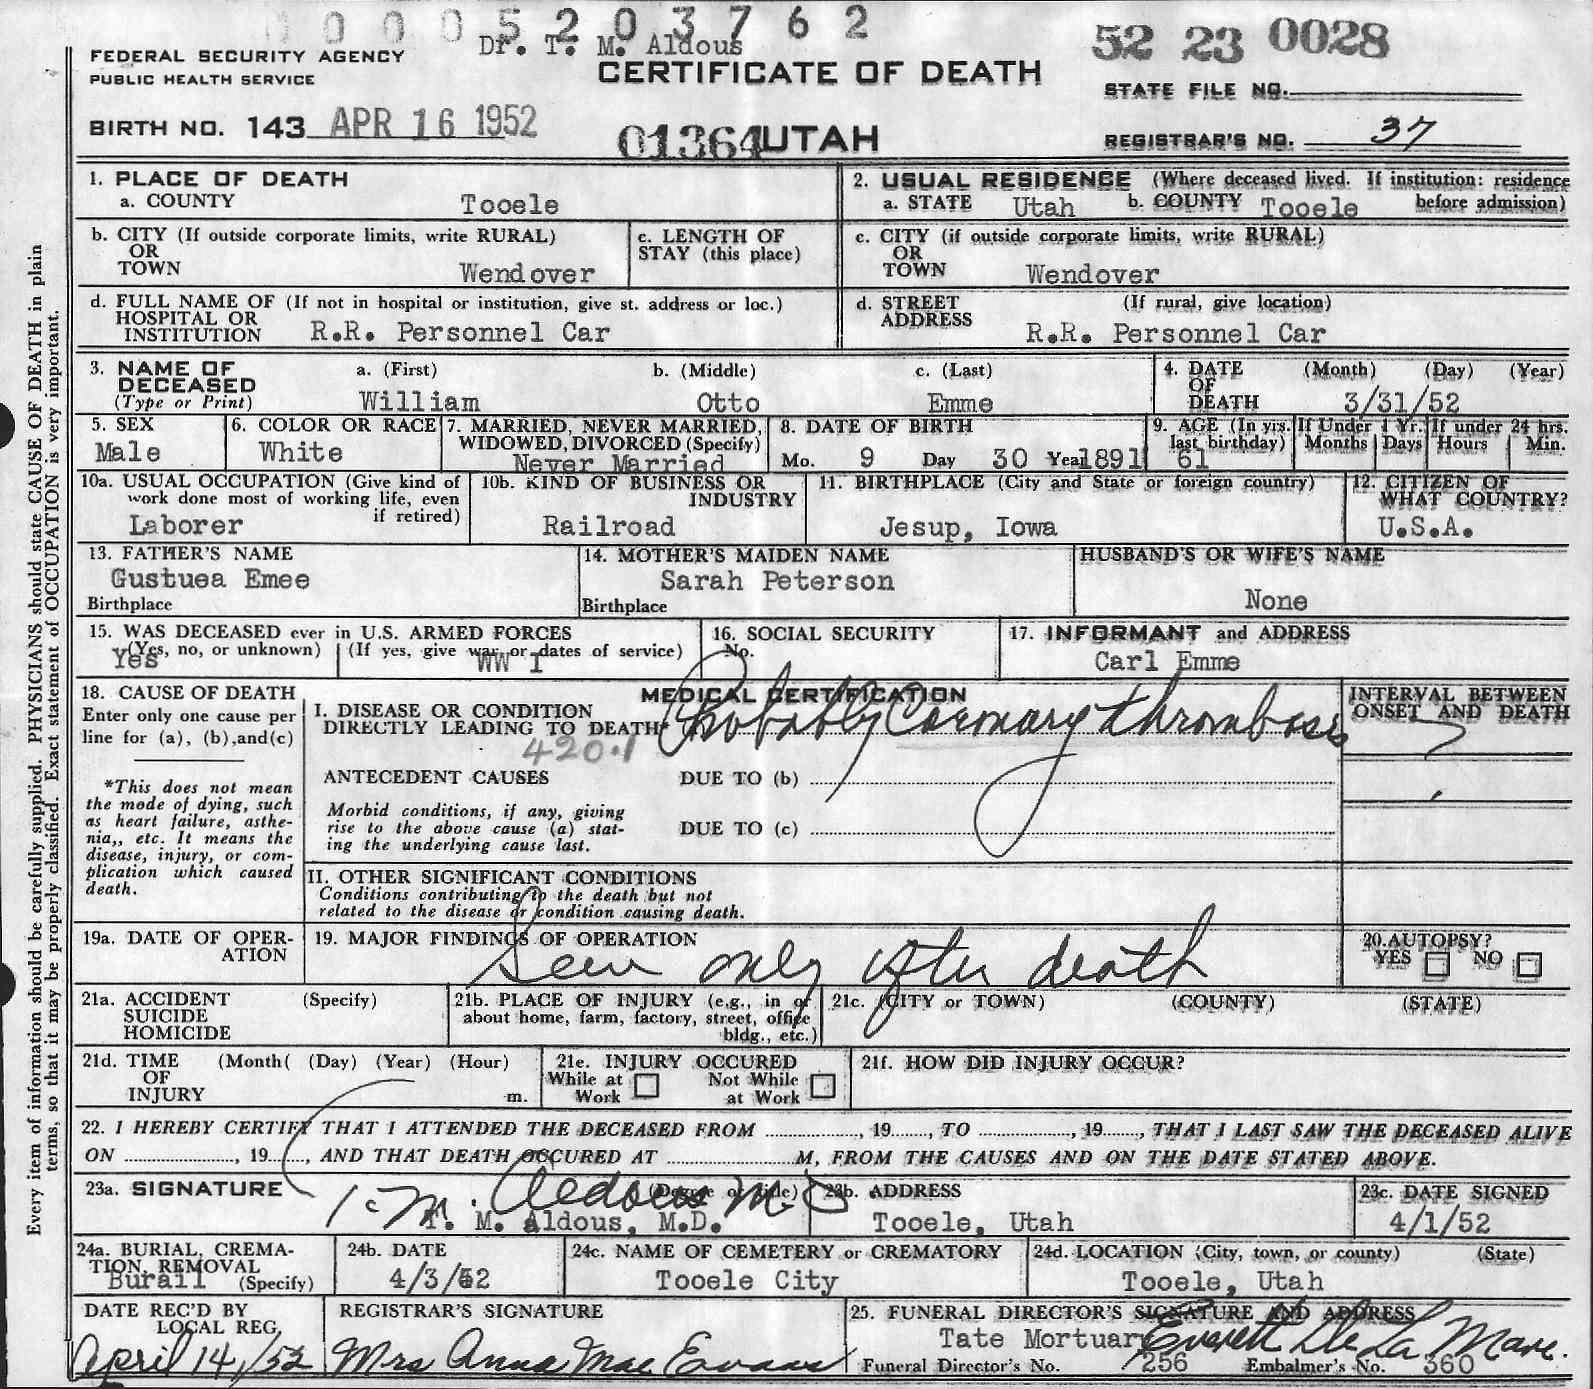 0 0 0 5 2 0 3 7 6 2
Dr. T. M. Aldous
52 23 0028
FEDERAL SECURITY AGENCY
PUBLIC HEALTH SERVICE
CERTIFICATE OF DEATH
STATE FILE NO.
BIRTH NO. 143 APR 16 1952
01364 UTAH
REGISTRAR'S NO. 37
Every item of information should be carefully supplied. PHYSICIANS should state CAUSE OF DEATH in plain
terms, so that it may be properly classified. Exact statement of OCCUPATION is very important.
1. PLACE OF DEATH
a. COUNTY Tooele
2. USUAL RESIDENCE (Where deceased lived. If institution: residence
a. STATE Utah b. COUNTY Tooele before admission)
b. CITY (If outside corporate limits, write RURAL)
OR
TOWN Wendover
c. LENGTH OF
STAY (this place)
c. CITY (if outside corporate limits, write RURAL)
OR
TOWN Wendover
d. FULL NAME OF (If not in hospital or institution, give st. address or loc.)
HOSPITAL OR
INSTITUTION R.R. Personnel Car
d. STREET (If rural, give location)
ADDRESS R.R. Personnel Car
3. NAME OF a. (First) b. (Middle) c. (Last)
DECEASED
(Type or Print) William Otto Emme
4. DATE (Month) (Day) (Year)
OF
DEATH 3/31/52
5. SEX
Male
6. COLOR OR RACE
White
7. MARRIED, NEVER MARRIED,
WIDOWED, DIVORCED (Specify)
Never Married
8. DATE OF BIRTH
Mo. 9 Day 30 Year 1891
9. AGE (In yrs.
last birthday)
61
If Under 1 Yr.
Months Days
If under 24 hrs.
Hours Min.
10a. USUAL OCCUPATION (Give kind of
work done most of working life, even
if retired)
Laborer
10b. KIND OF BUSINESS OR
INDUSTRY
Railroad
11. BIRTHPLACE (City and State or foreign country)
Jesup, Iowa
12. CITIZEN OF
WHAT COUNTRY?
U.S.A.
13. FATHER'S NAME
Gustuea Emee
Birthplace
14. MOTHER'S MAIDEN NAME
Sarah Peterson
Birthplace
HUSBAND'S OR WIFE'S NAME
None
15. WAS DECEASED ever in U.S. ARMED FORCES
(Yes, no, or unknown) (If yes, give war or dates of service)
Yes WW I
16. SOCIAL SECURITY
No.
17. INFORMANT and ADDRESS
Carl Emme
18. CAUSE OF DEATH
Enter only one cause per
line for (a), (b), and(c)
*This does not mean
the mode of dying, such
as heart failure, asthe-
nia,, etc. It means the
disease, injury, or com-
plication which caused
death.
MEDICAL CERTIFICATION
I. DISEASE OR CONDITION
DIRECTLY LEADING TO DEATH* Probably Coronary thrombosis
420.1
INTERVAL BETWEEN
ONSET AND DEATH
?
ANTECEDENT CAUSES DUE TO (b)
Morbid conditions, if any, giving
rise to the above cause (a) stat-
ing the underlying cause last.
DUE TO (c)
II. OTHER SIGNIFICANT CONDITIONS
Conditions contributing to the death but not
related to the disease or condition causing death.
19a. DATE OF OPER-
ATION
19. MAJOR FINDINGS OF OPERATION
Seen only after death
20. AUTOPSY?
YES NO
21a. ACCIDENT (Specify)
SUICIDE
HOMICIDE
21b. PLACE OF INJURY (e.g., in or
about home, farm, factory, street, office
bldg., etc.)
21c. (CITY or TOWN) (COUNTY) (STATE)
21d. TIME (Month( (Day) (Year) (Hour)
OF
INJURY m.
21e. INJURY OCCURED
While at Work Not While at Work
21f. HOW DID INJURY OCCUR?
22. I HEREBY CERTIFY THAT I ATTENDED THE DECEASED FROM , 19 , TO , 19 , THAT I LAST SAW THE DECEASED ALIVE
ON , 19 , AND THAT DEATH OCCURED AT M, FROM THE CAUSES AND ON THE DATE STATED ABOVE.
23a. SIGNATURE (Degree or title)
T. M. Aldous M.D.
T. M. Aldous, M.D.
23b. ADDRESS
Tooele, Utah
23c. DATE SIGNED
4/1/52
24a. BURIAL, CREMA-
TION, REMOVAL
Burail (Specify)
24b. DATE
4/3/52
24c. NAME OF CEMETERY or CREMATORY
Tooele City
24d. LOCATION (City, town, or county) (State)
Tooele, Utah
DATE REC'D BY
LOCAL REG.
April 14, /52
REGISTRAR'S SIGNATURE
Mrs Anna Mae Evans
25. FUNERAL DIRECTOR'S SIGNATURE AND ADDRESS
Tate Mortuary Everett De La Mare.
Funeral Director's No. 256 Embalmer's No. 360